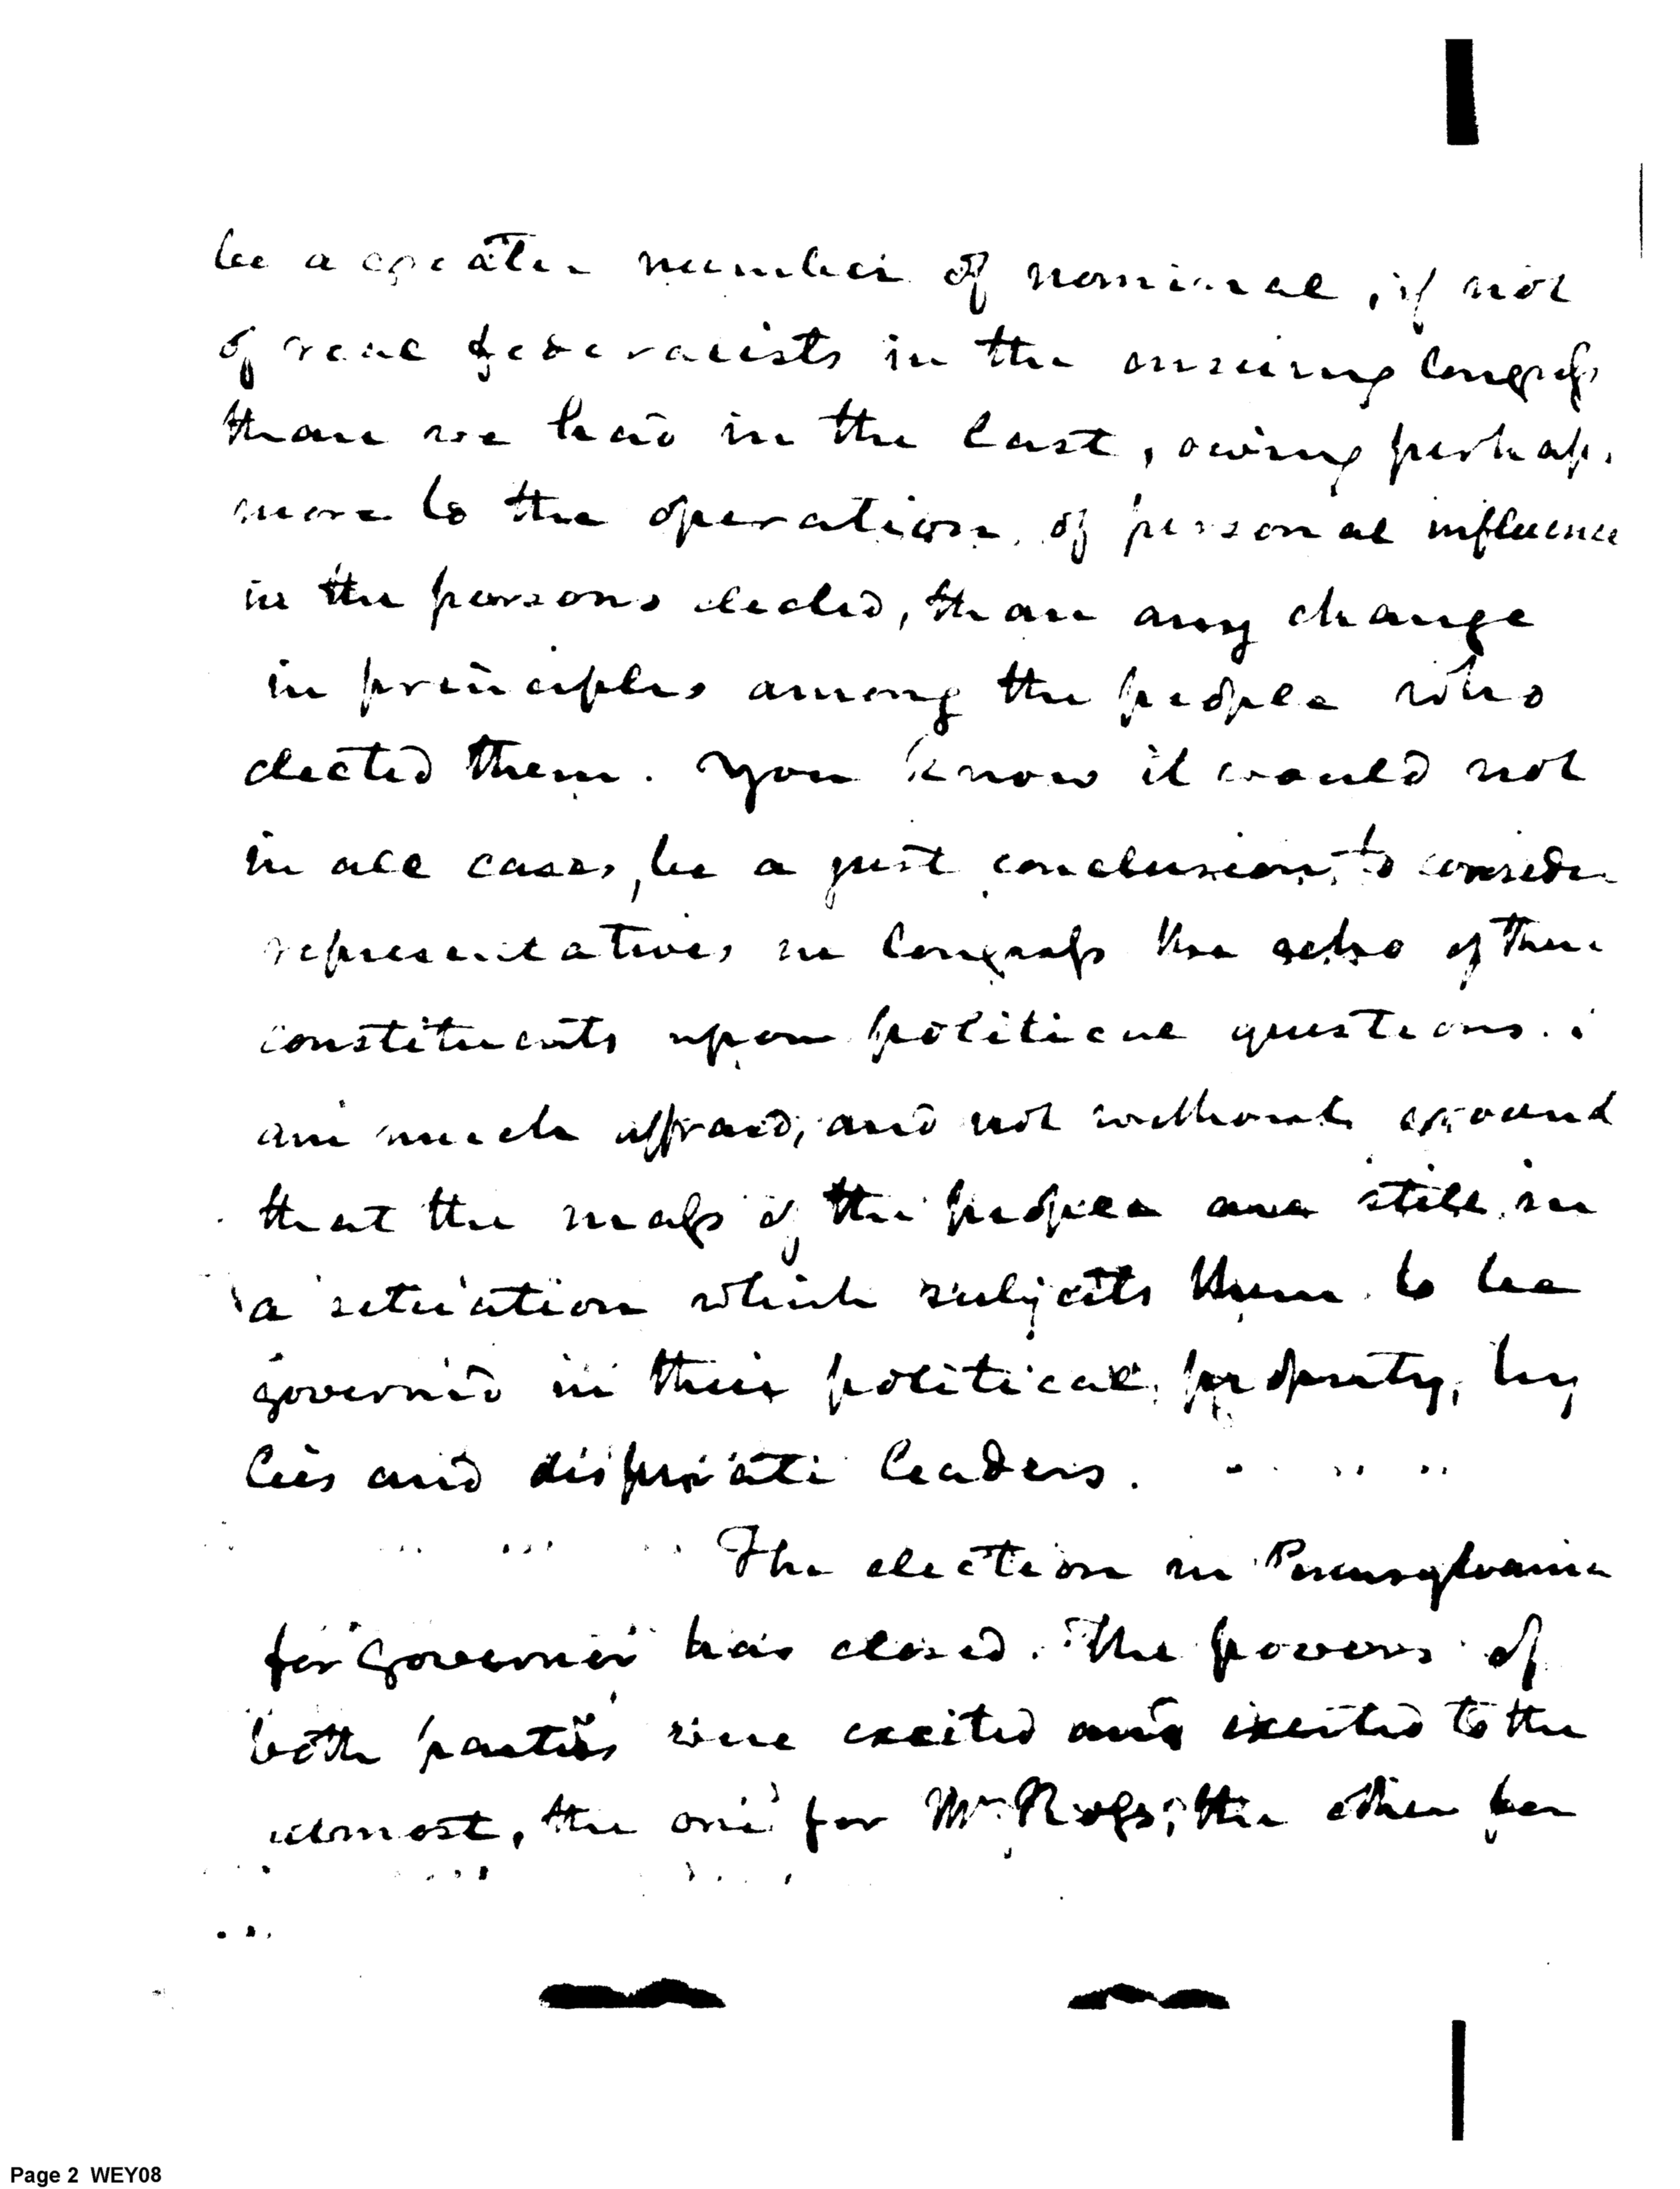 be a greater number of nominal, if not
of real federalists in the ensuing Congress
than we had in the last, owing perhaps
more to the operation of personal influence
in the persons elected, than any change
in principles among the people who
elected them. You know it would not
in all cases, be a just conclusion, to consider
representatives in Congress the echo of their
constituents upon political questions. i
am much affraid, and not without ground
that the mass of the people are still in
a situation which subjects them to be
governed in their political property, by
lies and disperate leaders.
The election in Pennsylvania
for Governor has closed. The powers of
both parties were excited and exerted to the
utmost, the one for Mr Ross, the other for
Page 2 WEY08